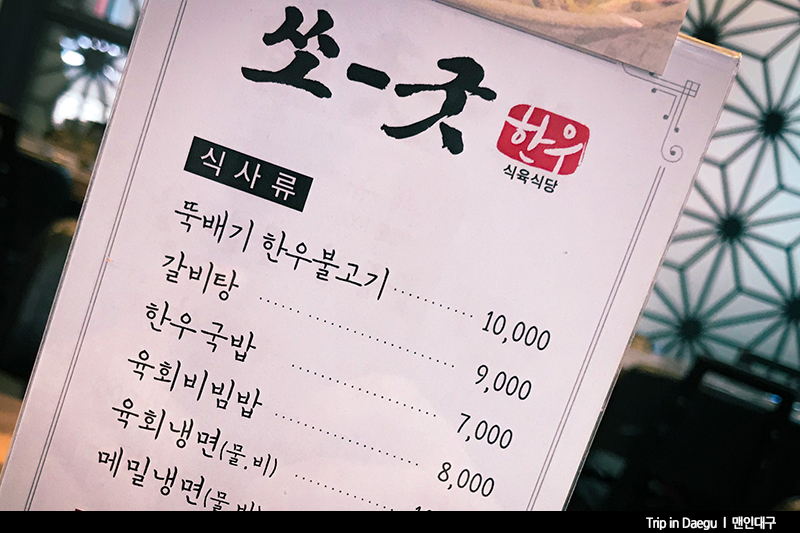 쏘-굿
한우
식육식당
식사류
뚝배기 한우불고기 10,000
갈비탕 9,000
한우국밥 7,000
육회비빔밥 8,000
육회냉면(물,비)
메밀냉면(물,비)
Trip in Daegu | 맨인대구